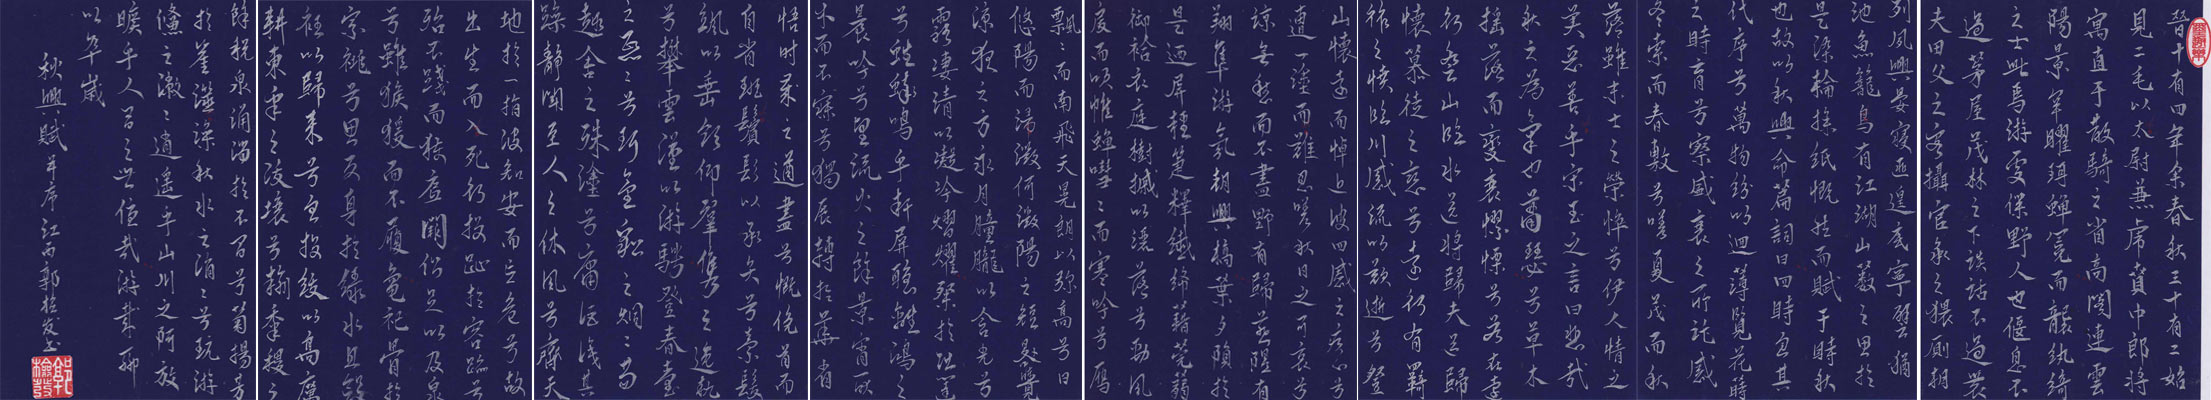 晉十有四年余春秋三十有二始
見二毛以太尉兼虎賁中郎將
寓直于散騎之省高閣連雲
陽景罕曜珥蟬冕而襲紈綺
之士此焉游處僕野人也偃息不
過茅屋茂林之下談話不過農
夫田父之客攝官承乏猥厠朝
列夙興晏寢匪遑底寧譬猶
池魚籠鳥有江湖山藪之思於
是染翰操紙慨然而賦于時秋
也故以秋興命篇詞曰四時忽其
代序兮萬物紛以迴薄覽花時
之時育兮察盛衰之所託感
冬索而春敷兮嗟夏茂而秋
落雖末士之榮悴兮伊人情之
美惡善乎宋玉之言曰悲哉
秋之為氣也蕭瑟兮草木
搖落而變衰憀慄兮若在遠
行登山臨水送將歸夫送歸
懷慕徒之戀兮遠行有羈
旅之憤臨川感流以歎逝兮登
山懷遠而悼近彼四慼之疚心兮
遭一塗而難忍嗟秋日之可哀兮
諒無愁而不盡野有歸燕隰有
翔隼游氛朝興槁葉夕隕於
是迺屏輕箑釋纖絺藉莞蒻
御袷衣庭樹摵以灑落兮勁風
戾而吹帷蟬嘒嘒而寒吟兮雁
飄飄而南飛天晃朗以彌高兮日
悠陽而浸微何微陽之短晷覺
涼夜之方永月朣朧以含光兮
露凄清以凝冷熠燿粲於階闥
兮蟋蟀鳴乎軒屏聽離鴻之
晨吟兮望流火之餘景宵耿
介而不寐兮獨展轉於華省
悟時歲之遒盡兮慨俛首而
自省斑鬢髟以承弁兮素髮
颯以垂領仰群雋之逸軌
兮攀雲漢以游騁登春臺
之熙熙兮珥金貂之炯炯苟
趣舍之殊塗兮庸詎識其
躁靜聞至人之休風兮齊天
地於一指彼知安而忘危兮故
出生而入死行投趾於容跡兮
殆不踐而獲底闕側足以及泉
兮雖猴猨而不履龜祀骨於
宗祧兮思反身於綠水且斂
衽以歸來兮忽投紱以高厲
耕東皋之沃壤兮輸黍稷之
餘稅泉涌湍於石間兮菊揚芳
於崖澨澡秋水之涓涓兮玩游
儵之潎潎逍遙乎山川之阿放
曠乎人間之世優哉游哉聊
以卒歲
秋興賦并序江西郭